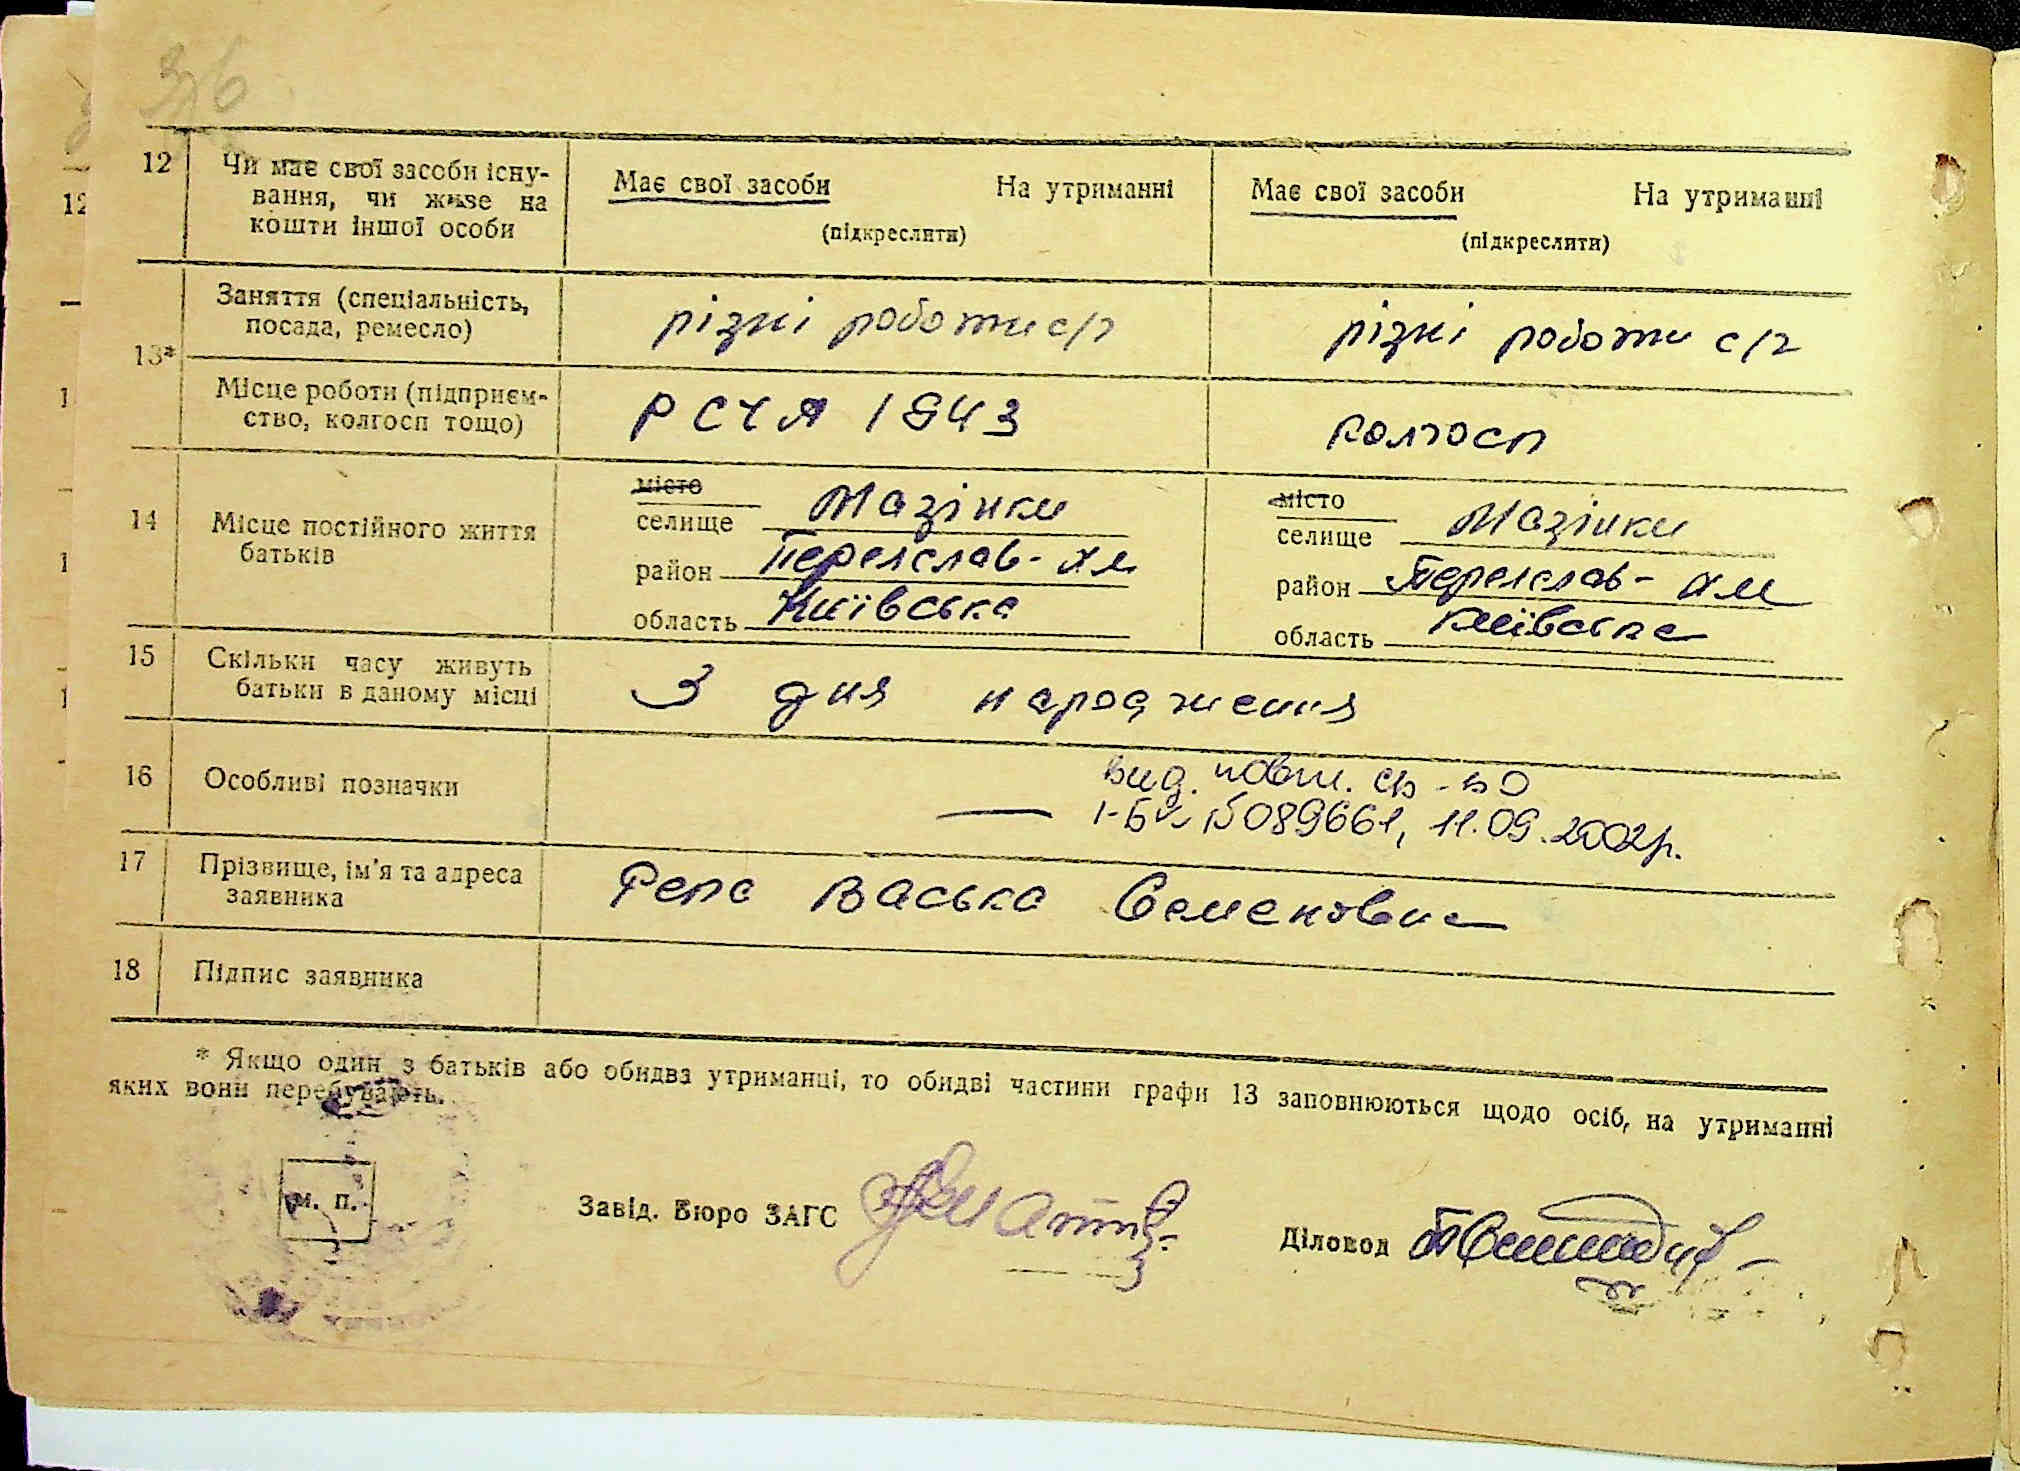 36
12 Чи має свої засоби існу-
вання, чи живе на
кошти іншої особи
Має свої засоби На утриманні
(підкреслити)
Має свої засоби На утриманні
(підкреслити)
13*
Заняття (спеціальність,
посада, ремесло)
різні роботи с/г
різні роботи с/г
Місце роботи (підприєм-
ство, колгосп тощо)
РСЧА 1943
колгосп
14 Місце постійного життя
батьків
місто
селище Мазінки
район Переяслав-Хм
область Київська
місто
селище Мазінки
район Переяслав-Хм
область Київська
15 Скільки часу живуть
батьки в даному місці
З дня народження
16 Особливі позначки
вид. повт. св-во
— І-БК №089661, 11.09.2002р.
17 Прізвище, ім'я та адреса
заявника
Репа Васька Семеновна
18 Підпис заявника
* Якщо один з батьків або обидва утриманці, то обидві частини графи 13 заповнюються щодо осіб, на утриманні
яких вони перебувають.
М. П.
Завід. Бюро ЗАГС
Діловод